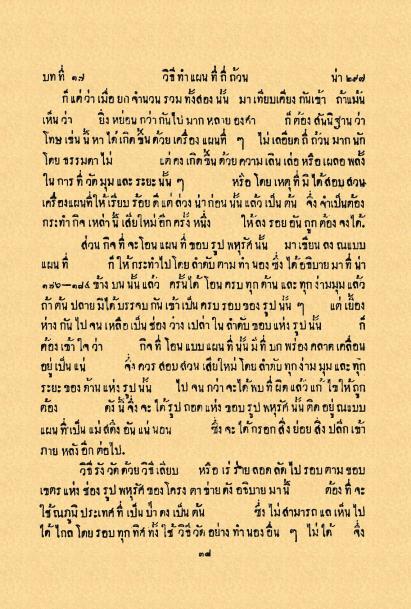 บทที่ ๑๗ วิธีทำแผนที่ถี่ถ้วน น่า ๒๙๗
ก็แต่ว่าเมื่อ ยกจำนวน รวม ทั้งสอง นั้น มาเทียบเคียง กันเข้า ถ้าแม้น
เห็น ว่า ยิ่ง หย่อน กว่า กันไป มาก หลาย องคำ ก็ ต้อง สันนิฐาน ว่า
โทษ เช่น นี้ หาได้ เกิดขึ้น ด้วย เครื่อง แผนที่ ๆ ไม่ เลอียด ถี่ ถ้วน มาก นัก
โดย ธรรมดา ไม่ แต่ คง เกิดขึ้น ด้วย ความ เลินเล่อ หรือ เผลอ พลั้ง
ใน การ ที่ วัด มุม และ ระยะ นั้น ๆ หรือ โดย เหตุ ที่ มิได้ สอบ สวน
เครื่องแผนที่ให้ เรียบ ร้อย แต่ ล่วง น่า ก่อน นั้น แล้ว เป็น ต้น จึ่ง จำเป็นต้อง
กระทำ กิจ เหล่า นี้ เสียใหม่ อีก ครั้ง หนึ่ง ให้ ลง รอย อัน ถูก ต้อง จงได้.
ส่วน กิจ ที่ จะ โอน แผน ที่ ขอบ รูป พหุรัศ นั้น มา เขียน ลง ณแบบ
แผน ที่ ก็ ให้ กระทำไป โดย ลำดับ ตาม ทำนอง ซึ่ง ได้ อธิบาย มา ที่ น่า
๑๘๖-๑๘๘ ข้าง บน นั้น แล้ว ครั้นได้ โอน ครบ ทุก ด้าน และ ทุก ง่ามมุม แล้ว
ถ้า ต้น ปลาย มิได้ บรรจบ กัน เข้า เป็น ครบ รอบ ของ รูป นั้น ๆ แต่ เยื้อง
ห่าง กัน ไป จน เหลือ เป็น ช่อง ว่าง เปล่า ใน ลำดับ ขอบ แห่ง รูป นั้น ก็
ต้อง เข้า ใจ ว่า กิจ ที่ โอน แบบ แผน ที่ นั้น มี ที่ บก พร่อง คลาด เคลื่อน
อยู่ เป็น แน่ จึ่ง ควร สอบ สวน เสียใหม่ โดย ลำดับ ทุก ง่าม มุม และ ทุก
ระยะ ของ ด้าน แห่ง รูป นั้น ไป จน กว่า จะ ได้ พบ ที่ ผิด แล้ว แก้ ไข ให้ ถูก
ต้อง ดัง นี้ จึ่ง จะ ได้ รูป ถอด แห่ง ขอบ รูป พหุรัศ นั้น ติด อยู่ ณแบบ
แผน ที่ เป็น แม่ สดึง อัน แน่ นอน ซึ่ง จะ ได้ กรอก สิ่ง ย่อย สิ่ง ปลีก เข้า
ภาย หลัง อีก ต่อ ไป.
วิธี รังวัด ด้วย วิธี เลียบ หรือ เร่ ร่าย ลอด ลัด ไป รอบ ตาม ขอบ
เขตร แห่ง ช่อง รูป พหุรัศ ของ โครง ตา ข่าย ดัง อธิบาย มา นี้ ต้อง ที่ จะ
ใช้ ณภูมิ ประเทศ ที่ เป็น ป่า ดง เป็น ต้น ซึ่ง ไม่ สามารถ แล เห็น ไป
ได้ ไกล โดย รอบ ทุก ทิศ ทั้ง ใช้ วิธี วัด อย่าง ทำนอง อื่น ๆ ไม่ ได้ จึ่ง
๓๘